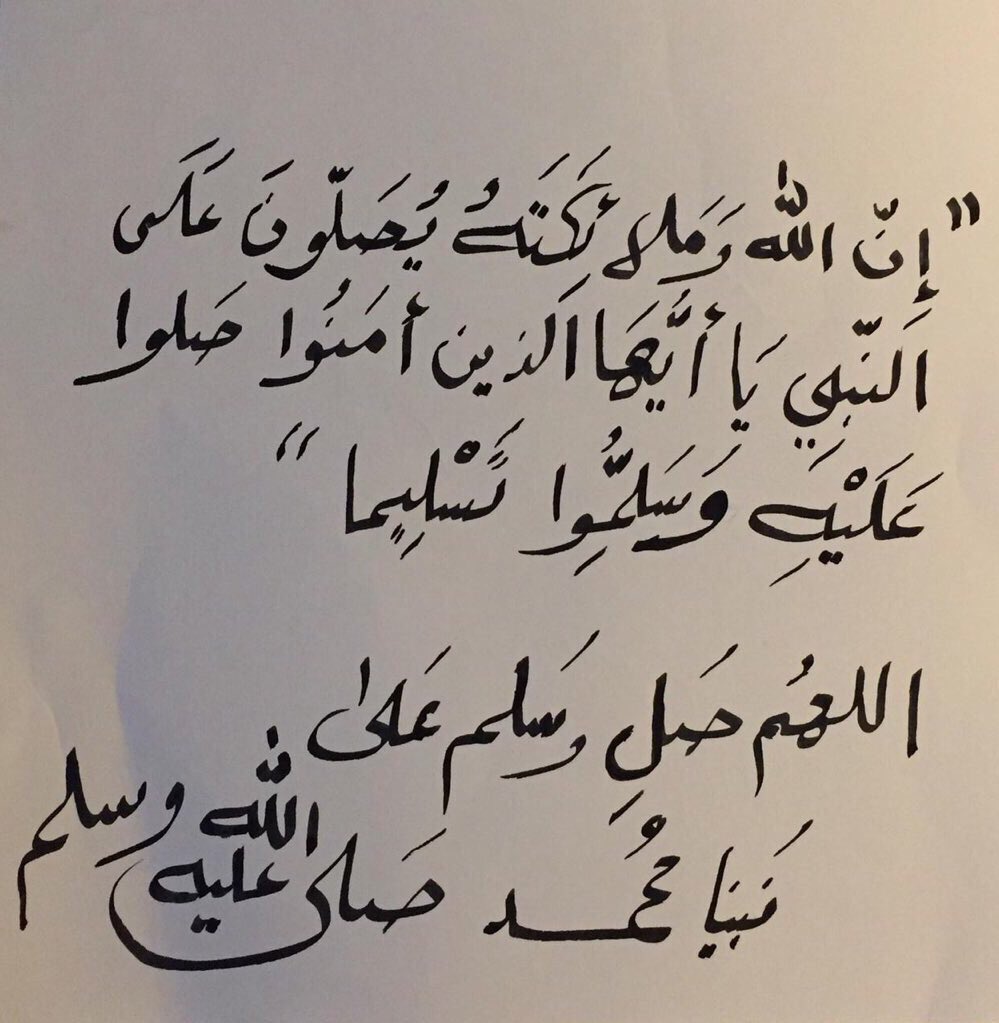 "إِنّ الله وَملائِكَتَهُ يُصَلّونَ عَلَى
اَلنّبِي يَا أَيُّهَا اَلذين أمَنُوا صَلوا
عَلَيْهِ وَسَلِّمُوا تَسْلِيما"
اللهُم صَلِ وَسَلم عَلىٰ
نَبينا مُحْمد صَلى الله عليه وسلم